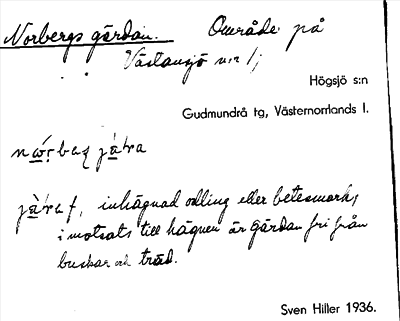 Norbergs gärdan. Område på
Västansjö n:r 1;
Högsjö s:n
Gudmundrå tg, Västernorrlands l.
f, inhägnad odling eller betesmark,
i motsats till hägnen är gärdan fri från
buskar och träd.
Sven Hiller 1936.